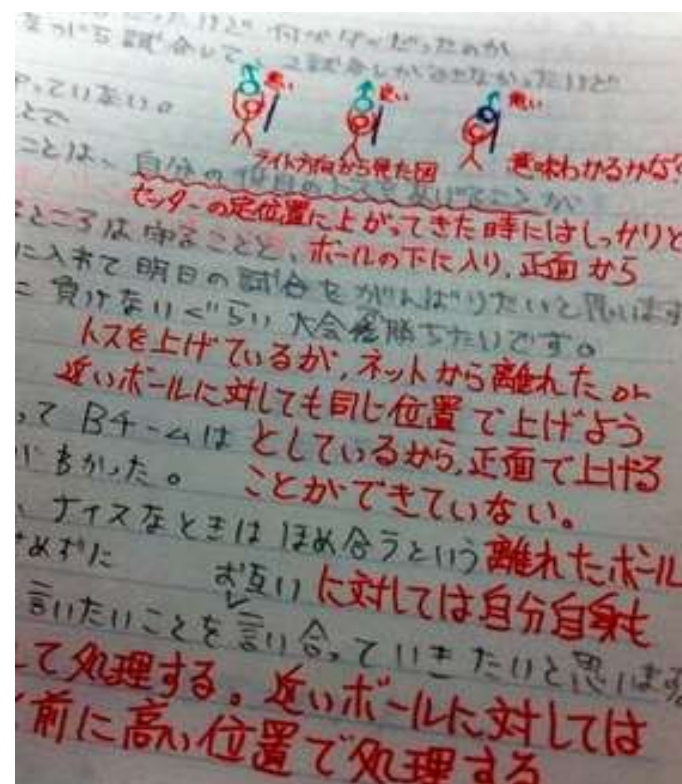 何がダメだったのか
試合して、2試合しかできなかったけど
悪い 良い 悪い
やっていない。
ライト方向から見た図 意味わかるかな?
ことは、自分の
セッターの定位置に上がってきた時にはしっかりと
ところは守ることと、ボールの下に入り、正面から
に入れて明日の試合をがんばりたいと思います
に負けないぐらい大会優勝ちたいです。
トスを上げているが、ネットから離れた or
近いボールに対しても同じ位置で上げよう
って Bチームは としているから、正面で上げる
多かった。 ことができていない。
、ナイスなときはほめ合うという 離れたボール
お互い に対しては自分自身も
言いたいことを言い合っていきたいと思います
して処理する。近いボールに対しては
前に高い位置で処理する